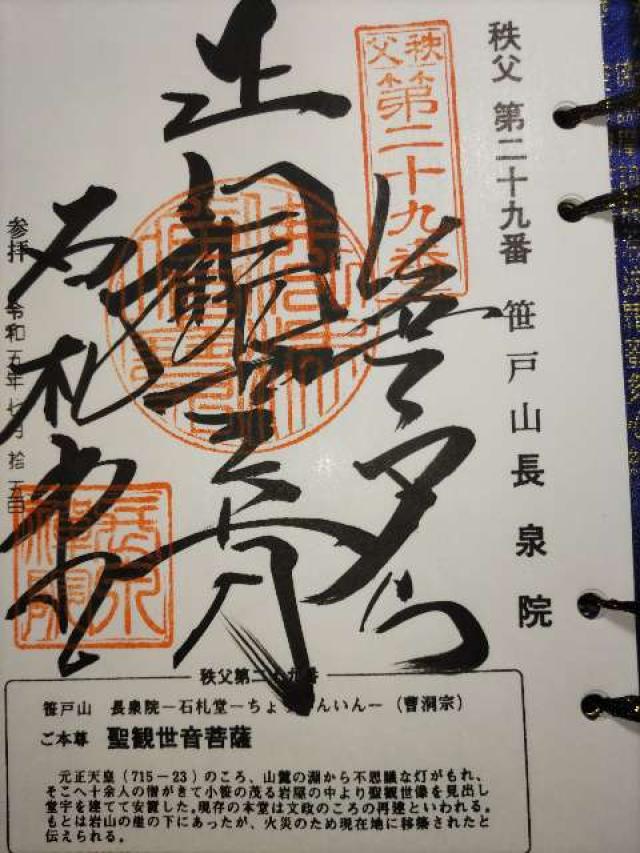 秩父 第二十九番 笹戸山長泉院
秩父
第二十九番
正
観世音
石札堂
参拝 令和五年七月拾五日
秩父第二十九番
笹戸山 長泉院－石札堂－ちょうせんいん－（曹洞宗）
ご本尊 聖観世音菩薩
元正天皇（715－23）のころ、山麓の淵から不思議な灯がもれ、
そこへ十余人の僧がきて小笹の茂る岩屋の中より聖観世像を見出し
堂宇を建てて安置した。現存の本堂は文政のころの再建といわれる。
もとは岩山の崖の下にあったが、火災のため現在地に移築されたと
伝えられる。